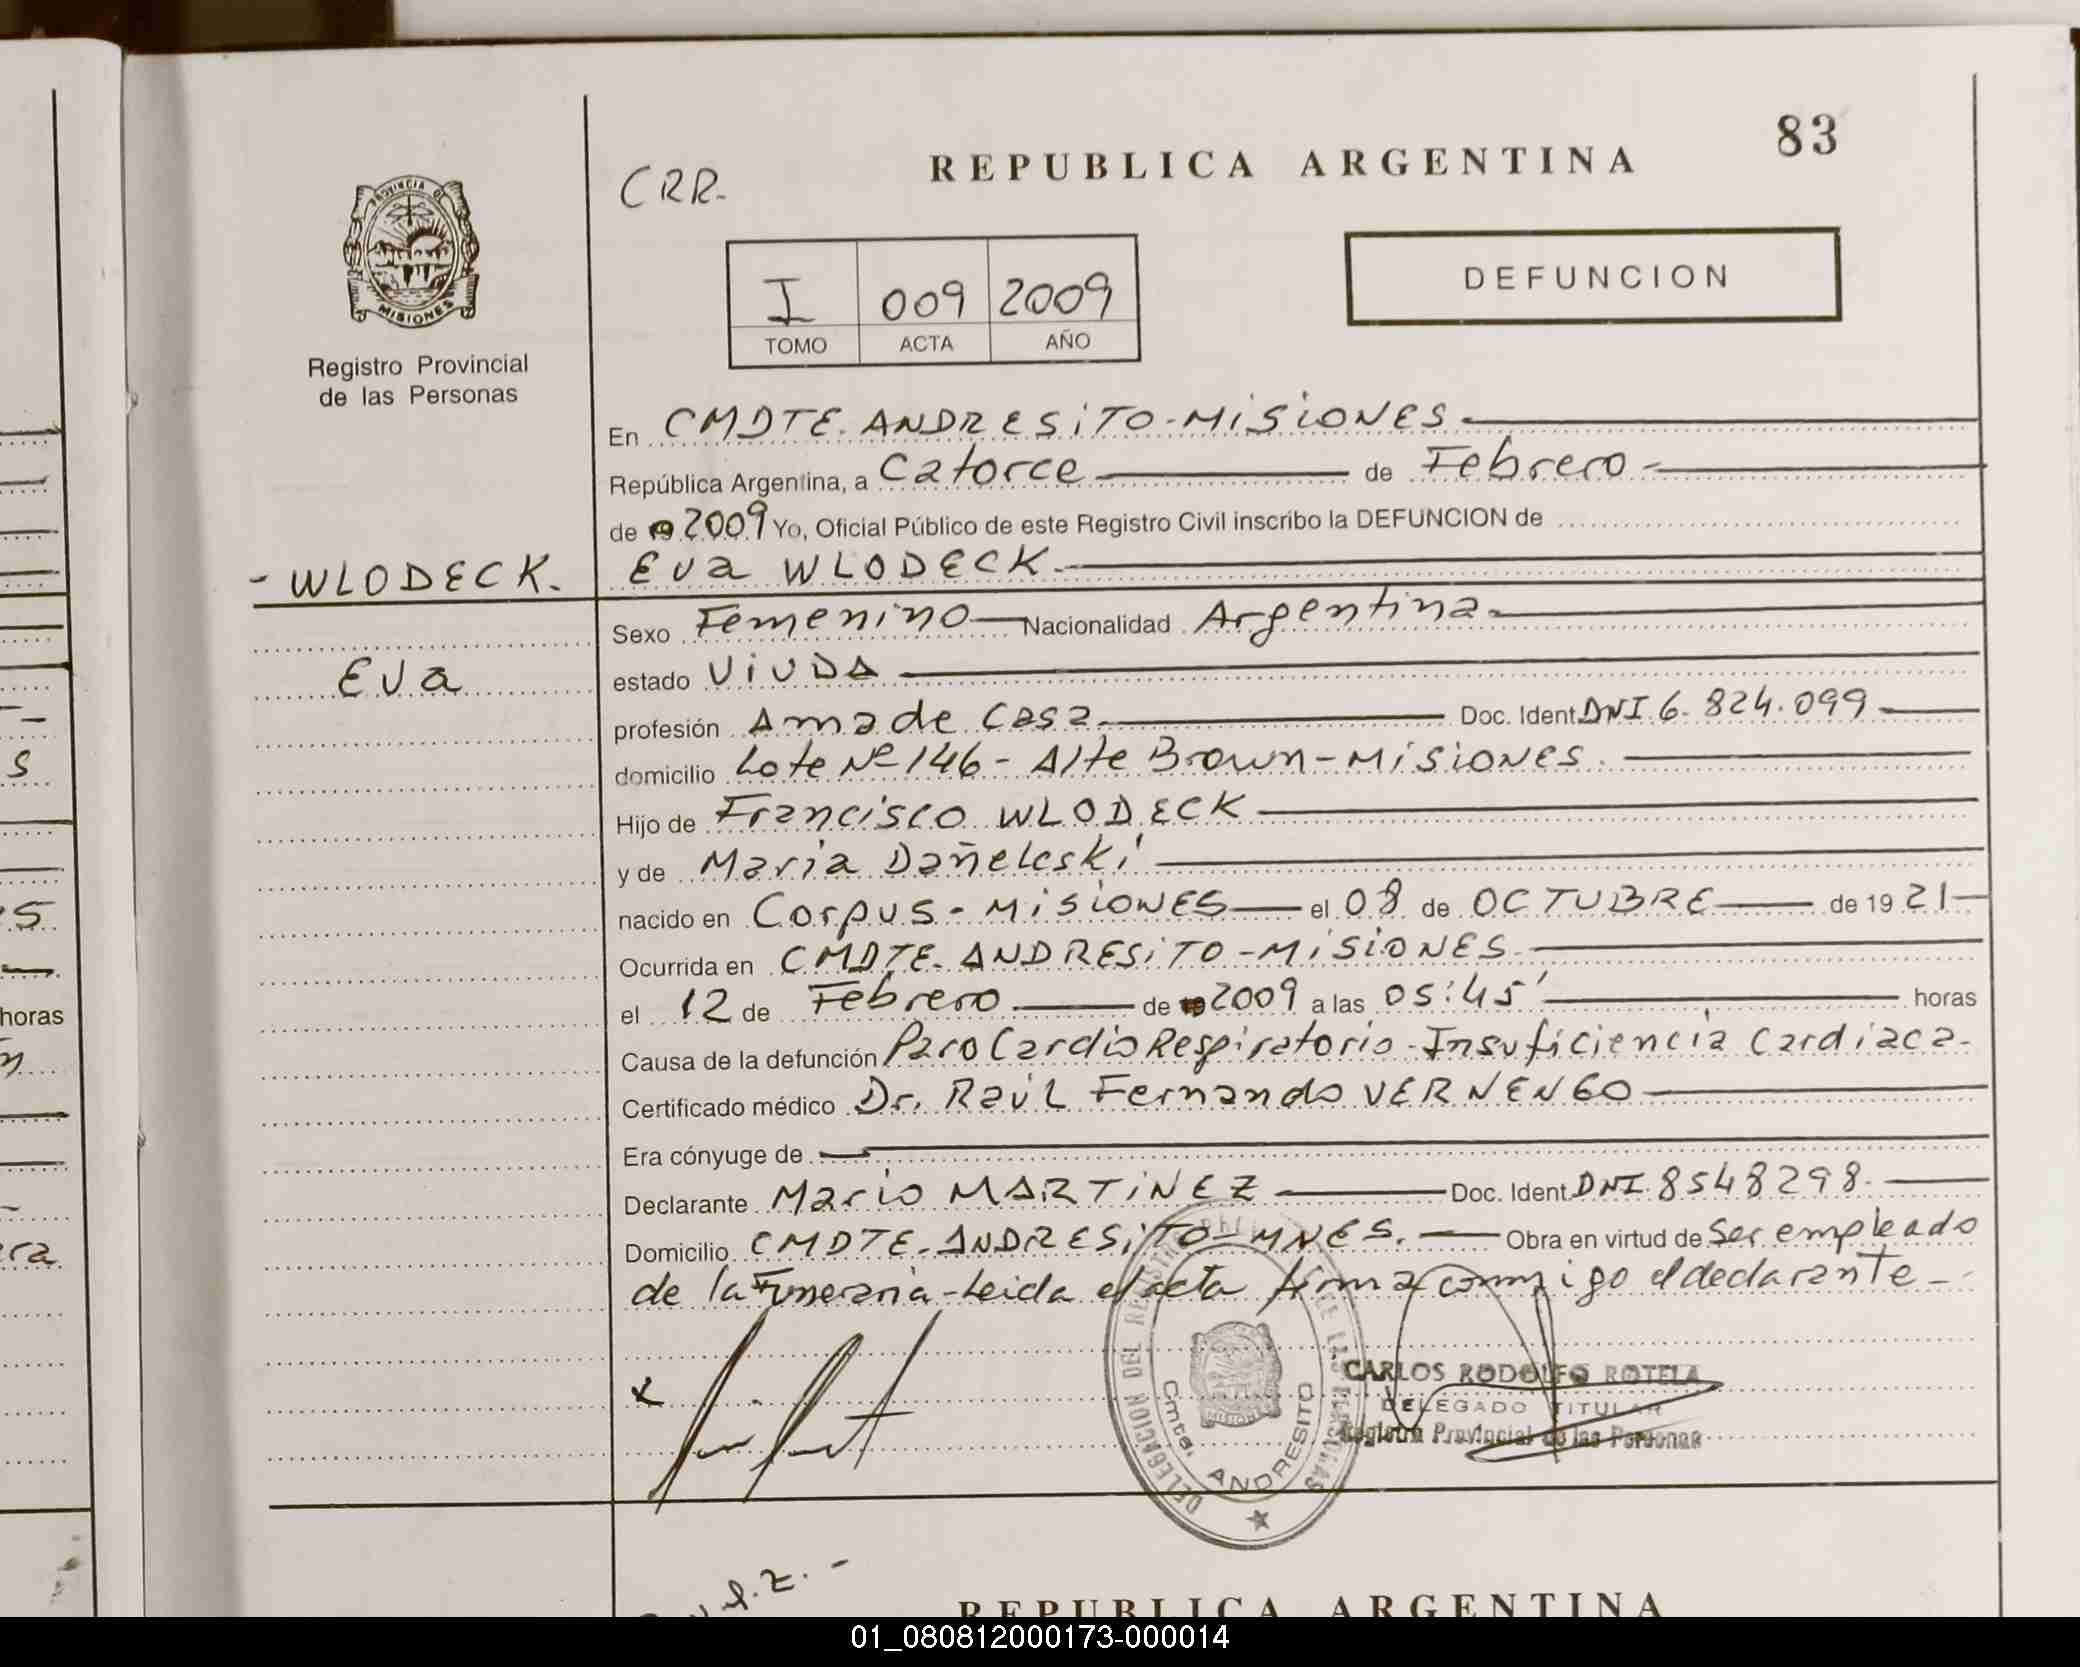 83
REPUBLICA ARGENTINA
CRR-
PROVINCIA DE
MISIONES
DEFUNCION
I 009 2009
TOMO ACTA AÑO
Registro Provincial
de las Personas
En CMDTE. ANDRESITO-MISIONES
República Argentina, a Catorce de Febrero-
de 19 2009 Yo, Oficial Público de este Registro Civil inscribo la DEFUNCION de
- WLODECK. Eva WLODECK.
Sexo Femenino Nacionalidad Argentina.
Eva estado ViUDA
profesión Ama de Casa. Doc. Ident. DNI 6.824.099
domicilio Lote Nº 146 - Alte Brown - MISIONES.
Hijo de Francisco WLODECK
y de Maria Dañeleski
nacido en Corpus - MISIONES el 08 de OCTUBRE de 19 21
Ocurrida en CMDTE. ANDRESITO - MISIONES.
el 12 de Febrero de 19 2009 a las 05:45' horas
Causa de la defunción Paro Cardio Respiratorio - Insuficiencia Cardiaca-
Certificado médico Dr. Raúl Fernando VERNENGO
Era cónyuge de
Declarante Mario MARTINEZ Doc. Ident. DNI. 8548298.
Domicilio CMDTE. ANDRESITO-MNES. Obra en virtud de Ser empleado
de la Funeraria - Leida el acta firma conmigo el declarante -
x
DELEGACION DEL REGISTRO DE LAS PERSONAS
MISIONES
Cmte. ANDRESITO
CARLOS RODOLFO ROTELA
DELEGADO TITULAR
Registro Provincial de las Personas
REPUBLICA ARGENTINA
s
s
horas
n
ra
01_080812000173-000014